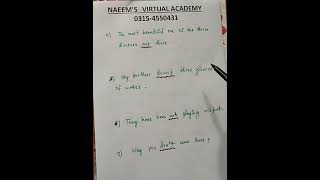 NAEEM'S VIRTUAL ACADEMY
0315-4550431
4) The most beautiful one of the three
dresses are here.
5) My brother drunk three glasses
of water.
6) They have been not playing cricket.
7) Why you didn't come here?